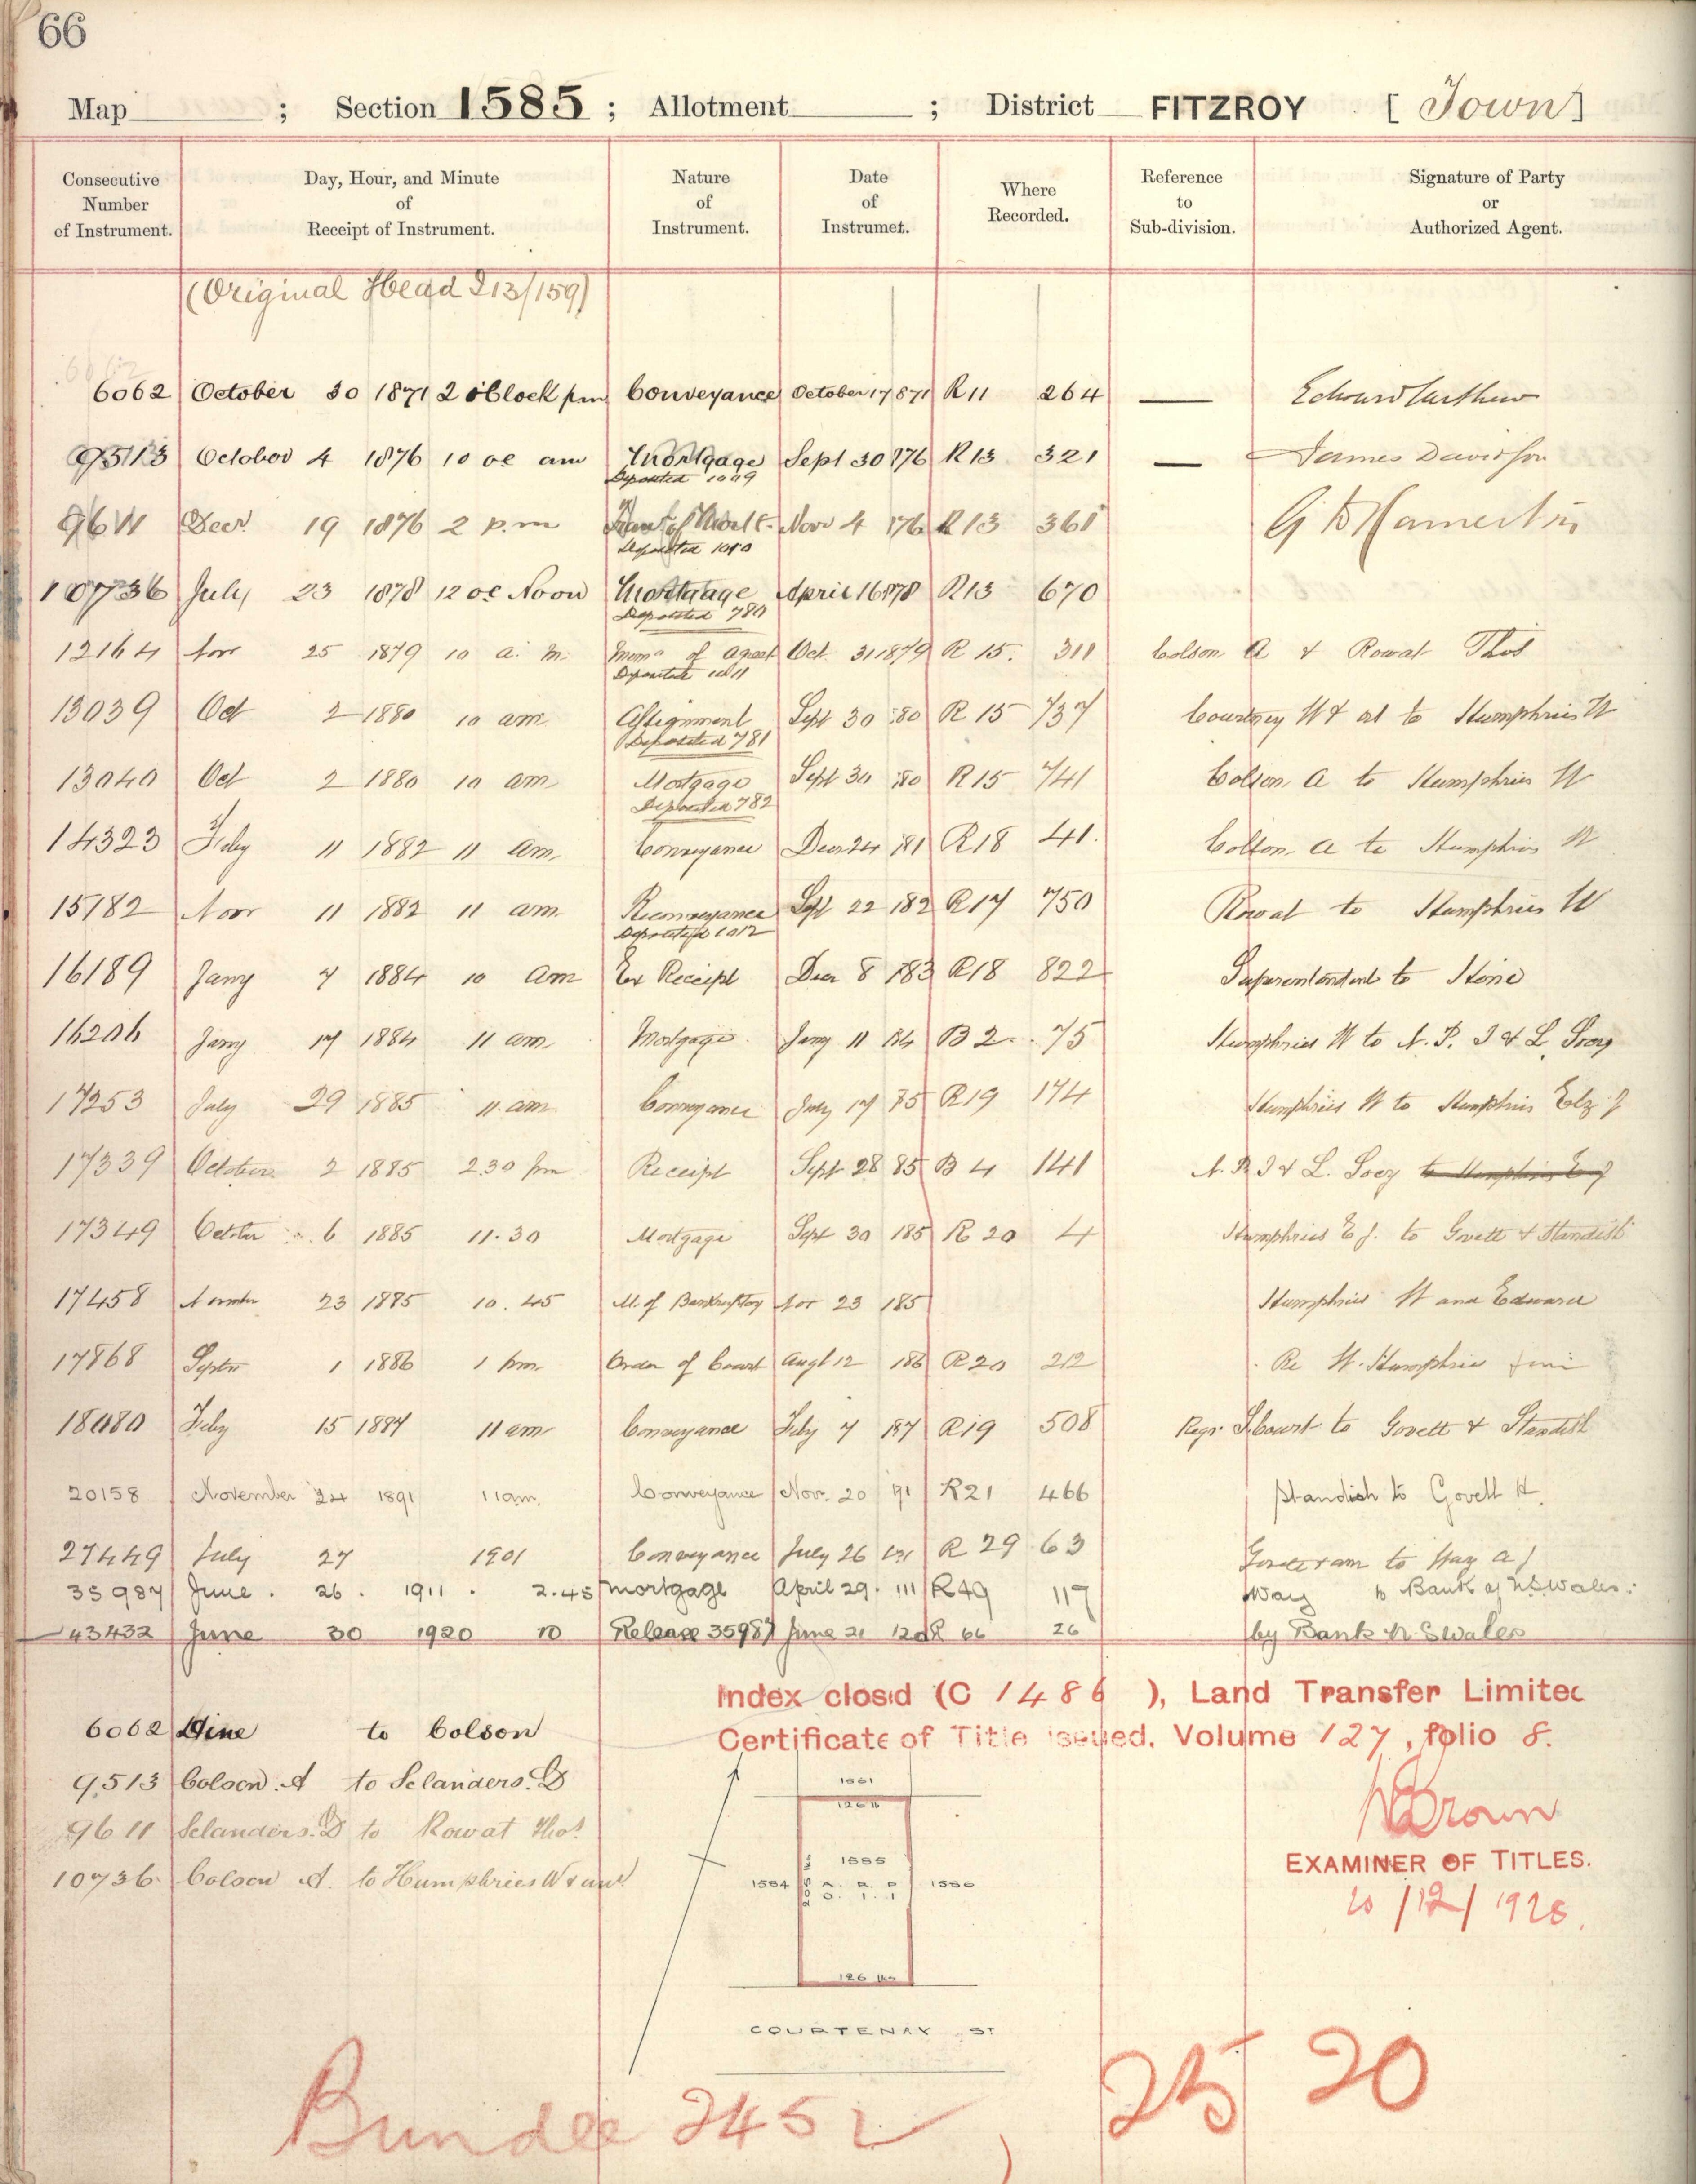 66
Map ; Section 1585 ; Allotment ; District FITZROY [ Town ]
Consecutive Number of Instrument. Day, Hour, and Minute of Receipt of Instrument. Nature of Instrument. Date of Instrumet. Where Recorded. Reference to Sub-division. Signature of Party or Authorized Agent.
(Original Head I 13/159)
6062 October 30 1871 2 o'Clock pm Conveyance October 17 1871 R11 264 —
9513 October 4 1876 10 oc am Mortgage Sept 30 1876 R13 321 — James Davidson
Deposited 1009
9611 Decr 19 1876 2 p.m Nov 4 1876 R13 361
Deposited 1010
10736 July 23 1878 12 oc Noon Mortgage April 16 1878 R13 670
Deposited 780
12164 Nov 25 1879 10 a.m. Memo of Agreet Oct 31 1879 R 15. 311 Colson A & Rowat Thos
Deposited 1011
13039 Oct 2 1880 10 am Assignment Sept 30 80 R 15 737 Courtney W & ors to Humphries W
Deposited 781
13040 Oct 2 1880 10 am Mortgage Sept 30 80 R15 741 Colson A to Humphries W
Deposited 782
14323 Feby 11 1882 11 am Conveyance Decr 24 81 R18 41. Colson A to Humphries W
15182 Novr 11 1882 11 am Reconveyance Sept 22 182 R17 750 Rowat to Humphries W
Deposited 1012
16189 Jany 7 1884 10 am Ex Receipt Decr 8 183 R18 822 Superintendent to Hine
16206 Jany 17 1884 11 am Mortgage Jany 11 84 B 2 75 Humphries W to N. P. I & L Socy
17253 July 29 1885 11 am Conveyance July 17 85 R19 174 Humphries W to Humphries Elz J
17339 October 2 1885 2.30 pm Receipt Sept 28 85 B 4 141 N. P. I & L. Socy to Humphries E J
17349 October 6 1885 11.30 Mortgage Sept 30 185 R 20 4 Humphries E J. to Govett & Standish
17458 November 23 1885 10.45 M. of Bankruptcy Nov 23 185 Humphries W and Edward
17868 Septr 1 1886 1 pm Order of Court Augt 12 186 R20 212 Re W. Humphries
18080 Feby 15 1887 11 am Conveyance Feby 7 187 R19 508 Regr S. Court to Govett & Standish
20158 November 24 1891 11 am. Conveyance Nov. 20 91 R21 466 Standish to Govett H.
27449 July 27 1901 Conveyance July 26 R 29 63 to Way A J
35987 June. 26. 1911. 2.45 Mortgage April 29. 111 R49 117 Way to Bank of N.S. Wales.
43432 June 30 1920 10 Release 35987 June 21 120 R 66 26 by Bank N S Wales
Index closed (C 1486 ), Land Transfer Limited
Certificate of Title issued, Volume 127, folio 8.
6062 Hine to Colson
9513 Colson. A to Selanders. D
9611 Selanders. D to Rowat Thos.
10736 Colson A. to Humphries W & anr
1561
126 lk
1585
1584 A. R. P 1586
0. 1. 1
126 lks
COURTENAY ST
Brown
EXAMINER OF TITLES.
20/12/1928.
Bundle 2452
25 20